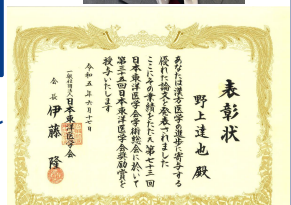 表彰状
野上達也 殿
あなたは漢方医学の進歩に寄与する
優れた論文を発表されました
ここにその業績をたたえ第七十三回
日本東洋医学会学術総会に於いて
第三十五回日本東洋医学会奨励賞を
授与いたします
令和五年六月十七日
一般社団法人日本東洋医学会
会長 伊藤 隆